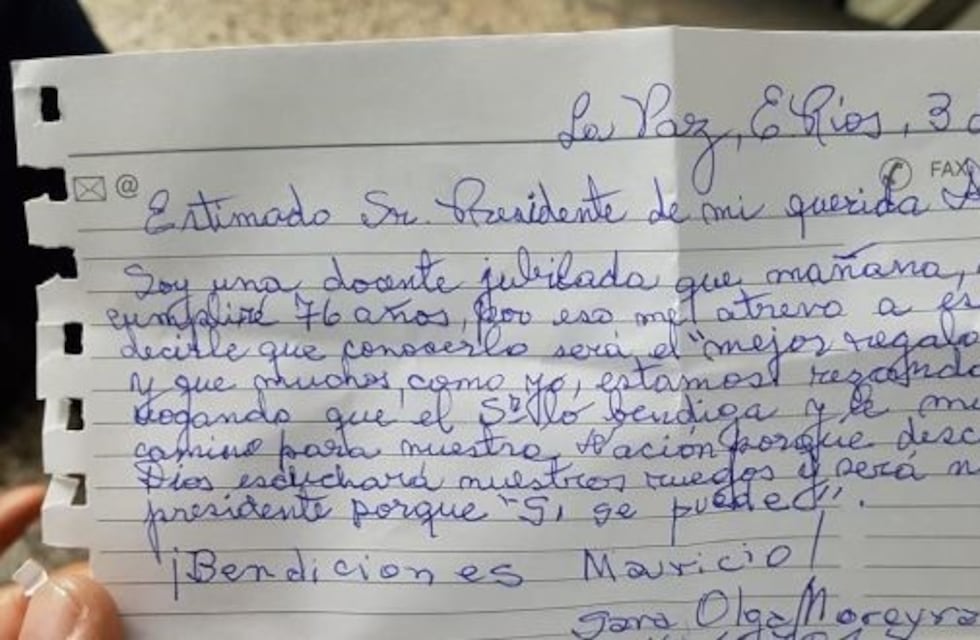 La Paz, E Ríos, 3 d
@ FAX
Estimado Sr. Presidente de mi querida A
Soy una docente jubilada que mañana,
cumpliré 76 años, por eso me atrevo a es
decirle que conocerlo será el "mejor regalo
y que muchos, como yo, estamos rezando
rogando que el Sr lo bendiga y le mu
camino para nuestra Nación porque
Dios escuchará nuestros ruegos y será n
presidente porque "Sí se puede".
¡Bendiciones Mauricio!
Sara Olga Moreyra